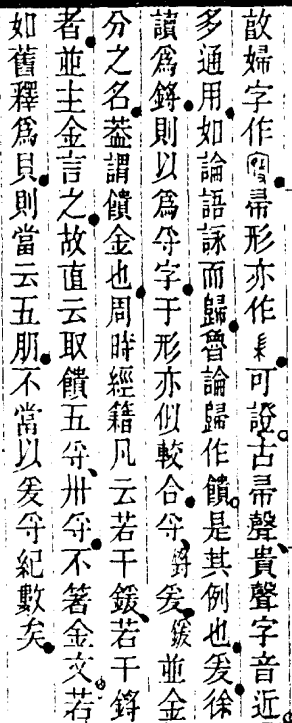 敔婦字作帚形亦作可證古帚聲貴聲字音近
多通用如論語詠而歸魯論歸作饋是其例也爰徐
讀爲鋝則以爲寽字于形亦似較合寽鋝爰鍰並金
分之名葢謂饋金也周時經籍凡云若干鍰若干鋝
者並主金言之故直云取饋五寽卅寽不箸金文若
如舊釋爲貝則當云五朋不當以爰寽紀數矣